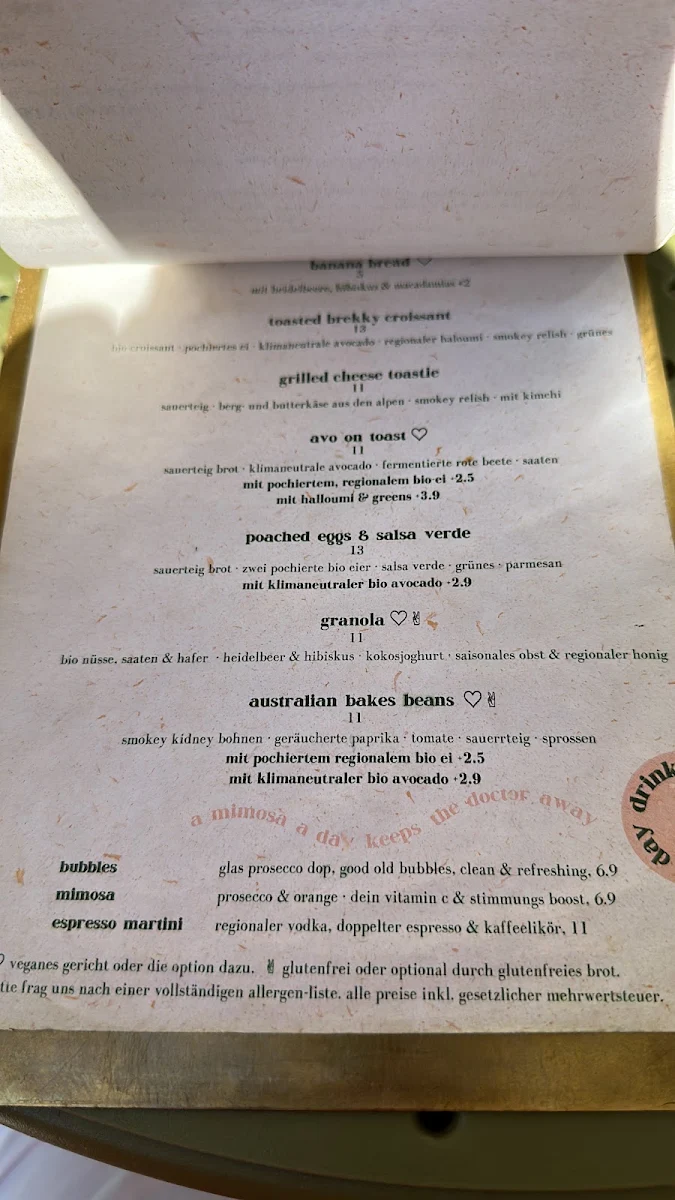 banana bread ♡
5
mit heidelbeere, hibiskus & macadamias +2
toasted brekky croissant
13
bio croissant · pochiertes ei · klimaneutrale avocado · regionaler haloumi · smokey relish · grünes
grilled cheese toastie
11
sauerteig · berg- und butterkäse aus den alpen · smokey relish · mit kimchi
avo on toast ♡
11
sauerteig brot · klimaneutrale avocado · fermentierte rote beete · saaten
mit pochiertem, regionalem bio-ei +2.5
mit halloumi & greens +3.9
poached eggs & salsa verde
13
sauerteig brot · zwei pochierte bio eier · salsa verde · grünes · parmesan
mit klimaneutraler bio avocado +2.9
granola ♡ ✌
11
bio nüsse, saaten & hafer · heidelbeer & hibiskus · kokosjoghurt · saisonales obst & regionaler honig
australian bakes beans ♡ ✌
11
smokey kidney bohnen · geräucherte paprika · tomate · sauerrteig · sprossen
mit pochiertem regionalem bio ei +2.5
mit klimaneutraler bio avocado +2.9
a mimosa a day keeps the doctor away
day drink
bubbles glas prosecco dop, good old bubbles, clean & refreshing, 6.9
mimosa prosecco & orange · dein vitamin c & stimmungs boost, 6.9
espresso martini regionaler vodka, doppelter espresso & kaffeelikör, 11
♡ veganes gericht oder die option dazu. ✌ glutenfrei oder optional durch glutenfreies brot.
tte frag uns nach einer vollständigen allergen-liste. alle preise inkl. gesetzlicher mehrwertsteuer.